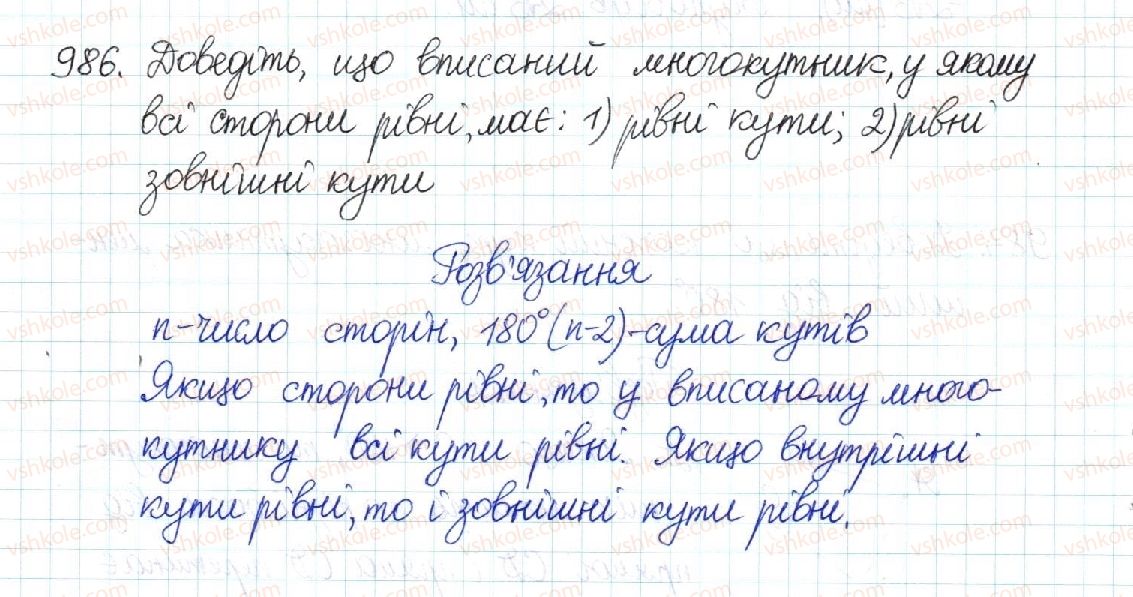 986. Доведіть, що вписаний многокутник, у якому
всі сторони рівні, має: 1) рівні кути; 2) рівні
зовнішні кути
Розв'язання
n-число сторін, 180°(n-2)-сума кутів
Якщо сторони рівні, то у вписаному много-
кутнику всі кути рівні. Якщо внутрішні
кути рівні, то і зовнішні кути рівні.